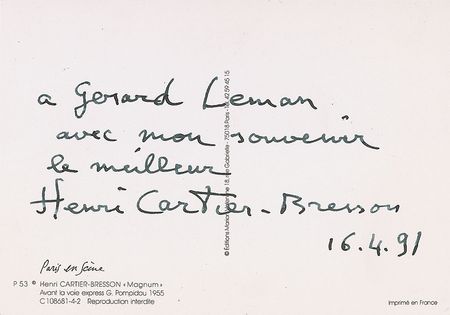 a Gerard Leman
avec mon souvenir
le meilleur
Henri Cartier-Bresson
16.4.91
Paris en Seine
P 53 © Henri CARTIER-BRESSON « Magnum »
Avant la voie express G. Pompidou 1955
C 108681-4-2 Reproduction interdite
Imprimé en France
18, rue Gabrielle - 75018 Paris